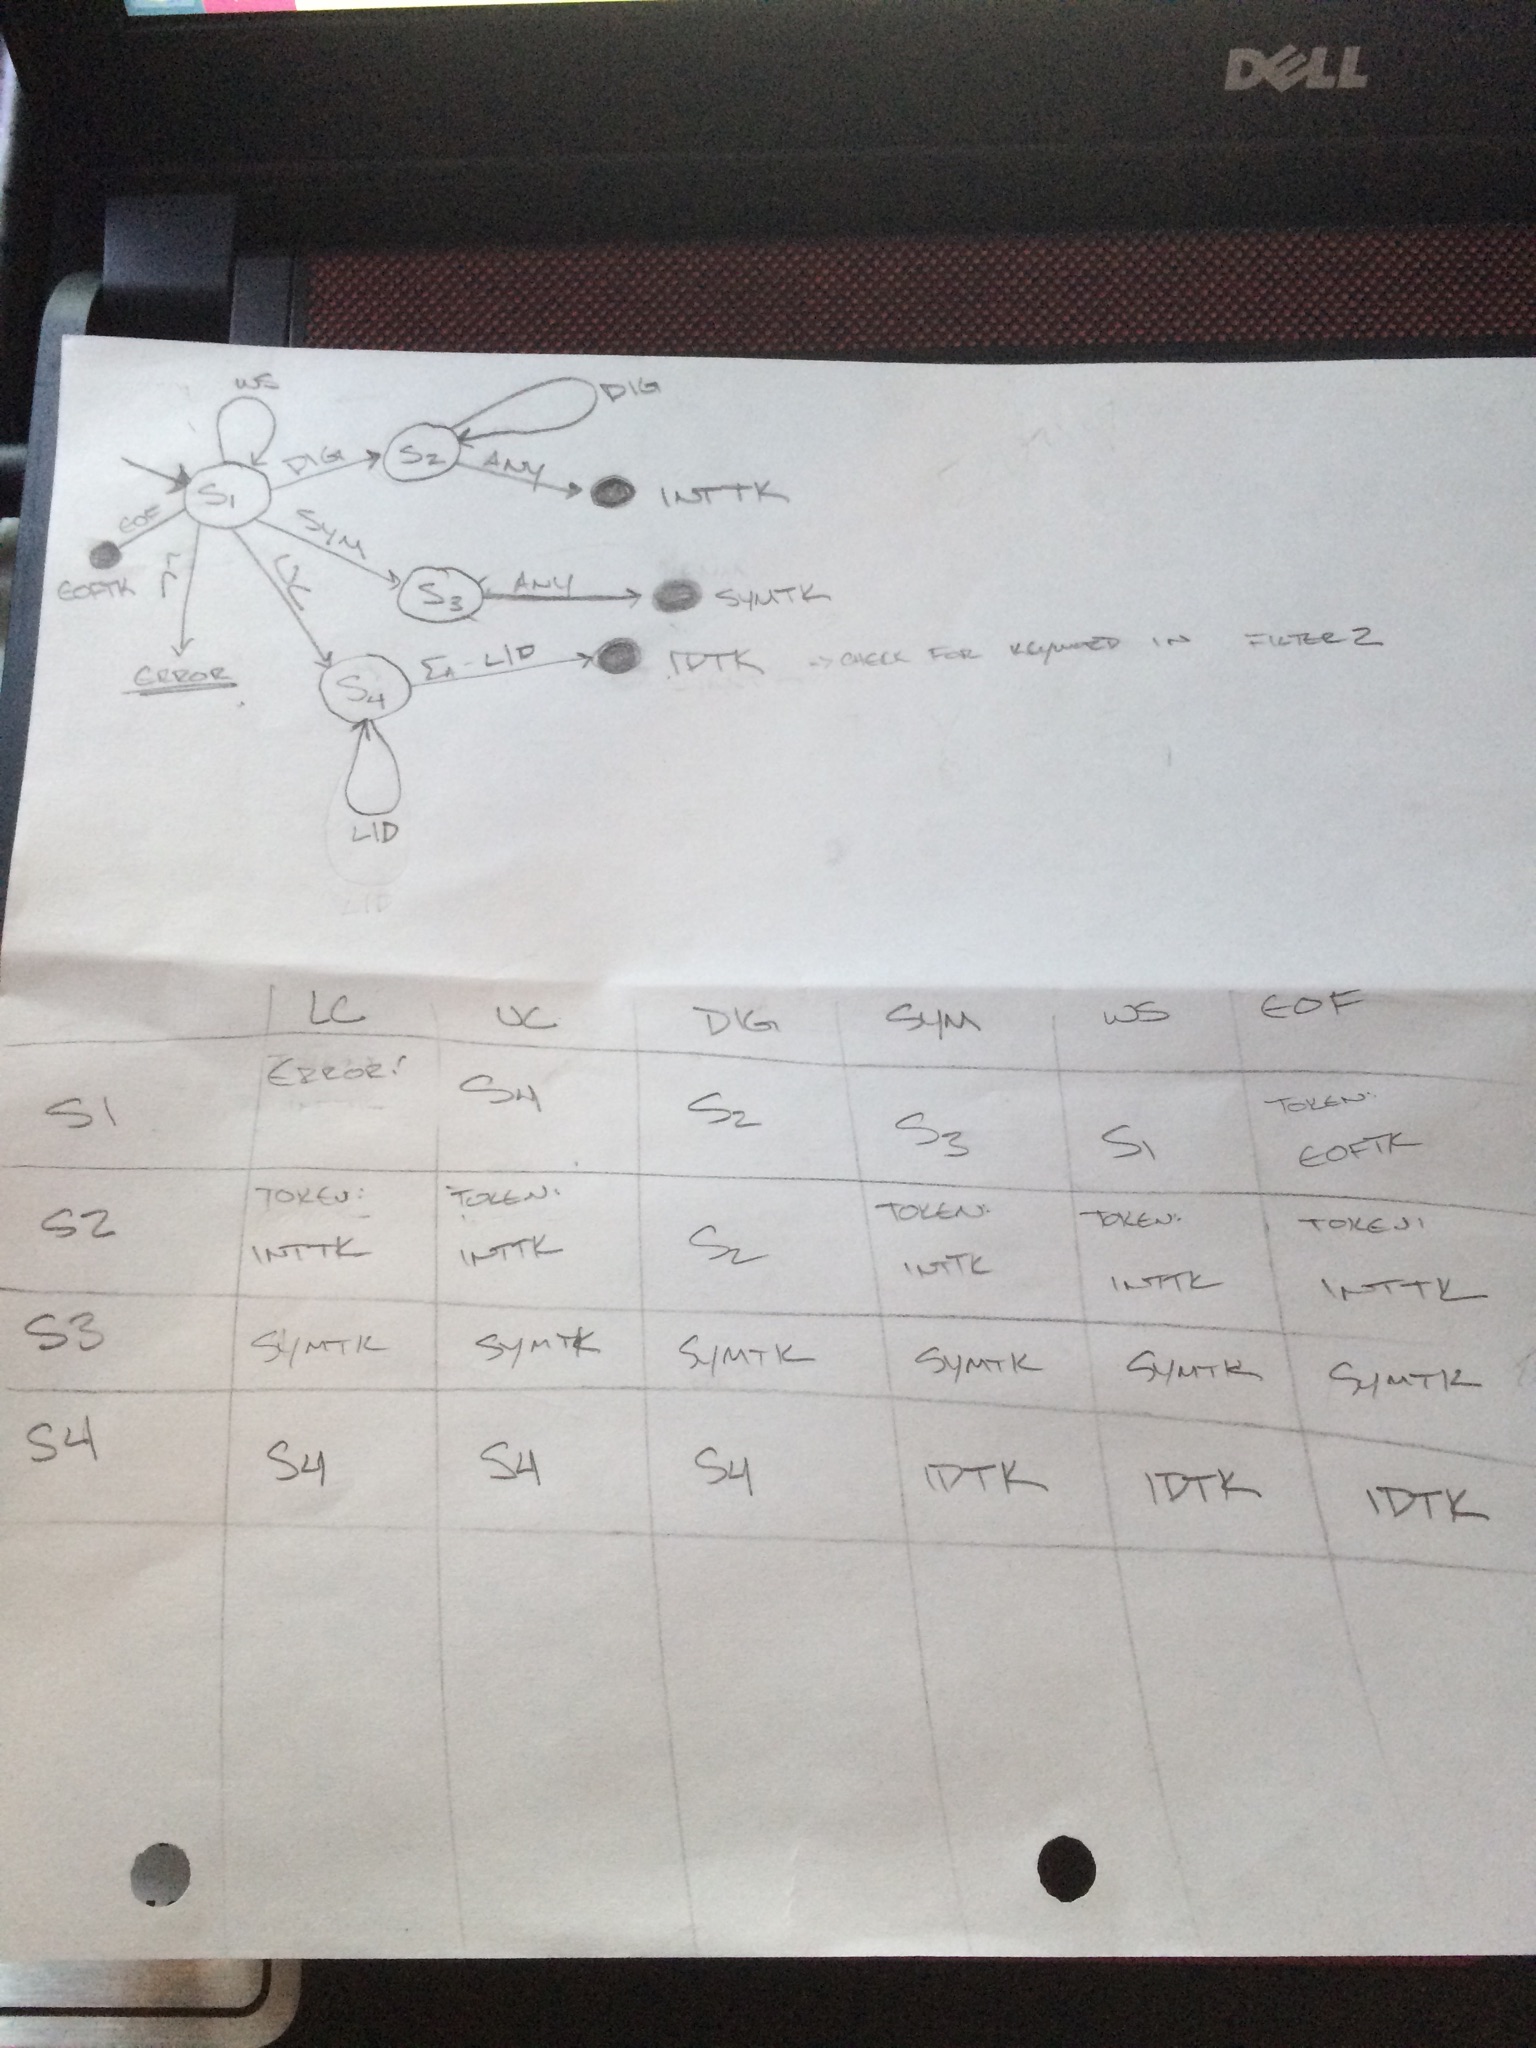 DELL
WS
DIG
DIG
S2
ANY
INTTK
S1
EOF
SYM
EOFTK
S3
ANY
SYMTK
ERROR
S4
ΣA-LID
IDTK -> CHECK FOR KEYWORD IN FILTER2
LID
LID
LC UC DIG SYM WS EOF
S1 ERROR! S4 S2 S3 S1 TOKEN: EOFTK
S2 TOKEN: INTTK TOKEN: INTTK S2 TOKEN: INTTK TOKEN: INTTK TOKEN: INTTK
S3 SYMTK SYMTK SYMTK SYMTK SYMTK SYMTK
S4 S4 S4 S4 IDTK IDTK IDTK